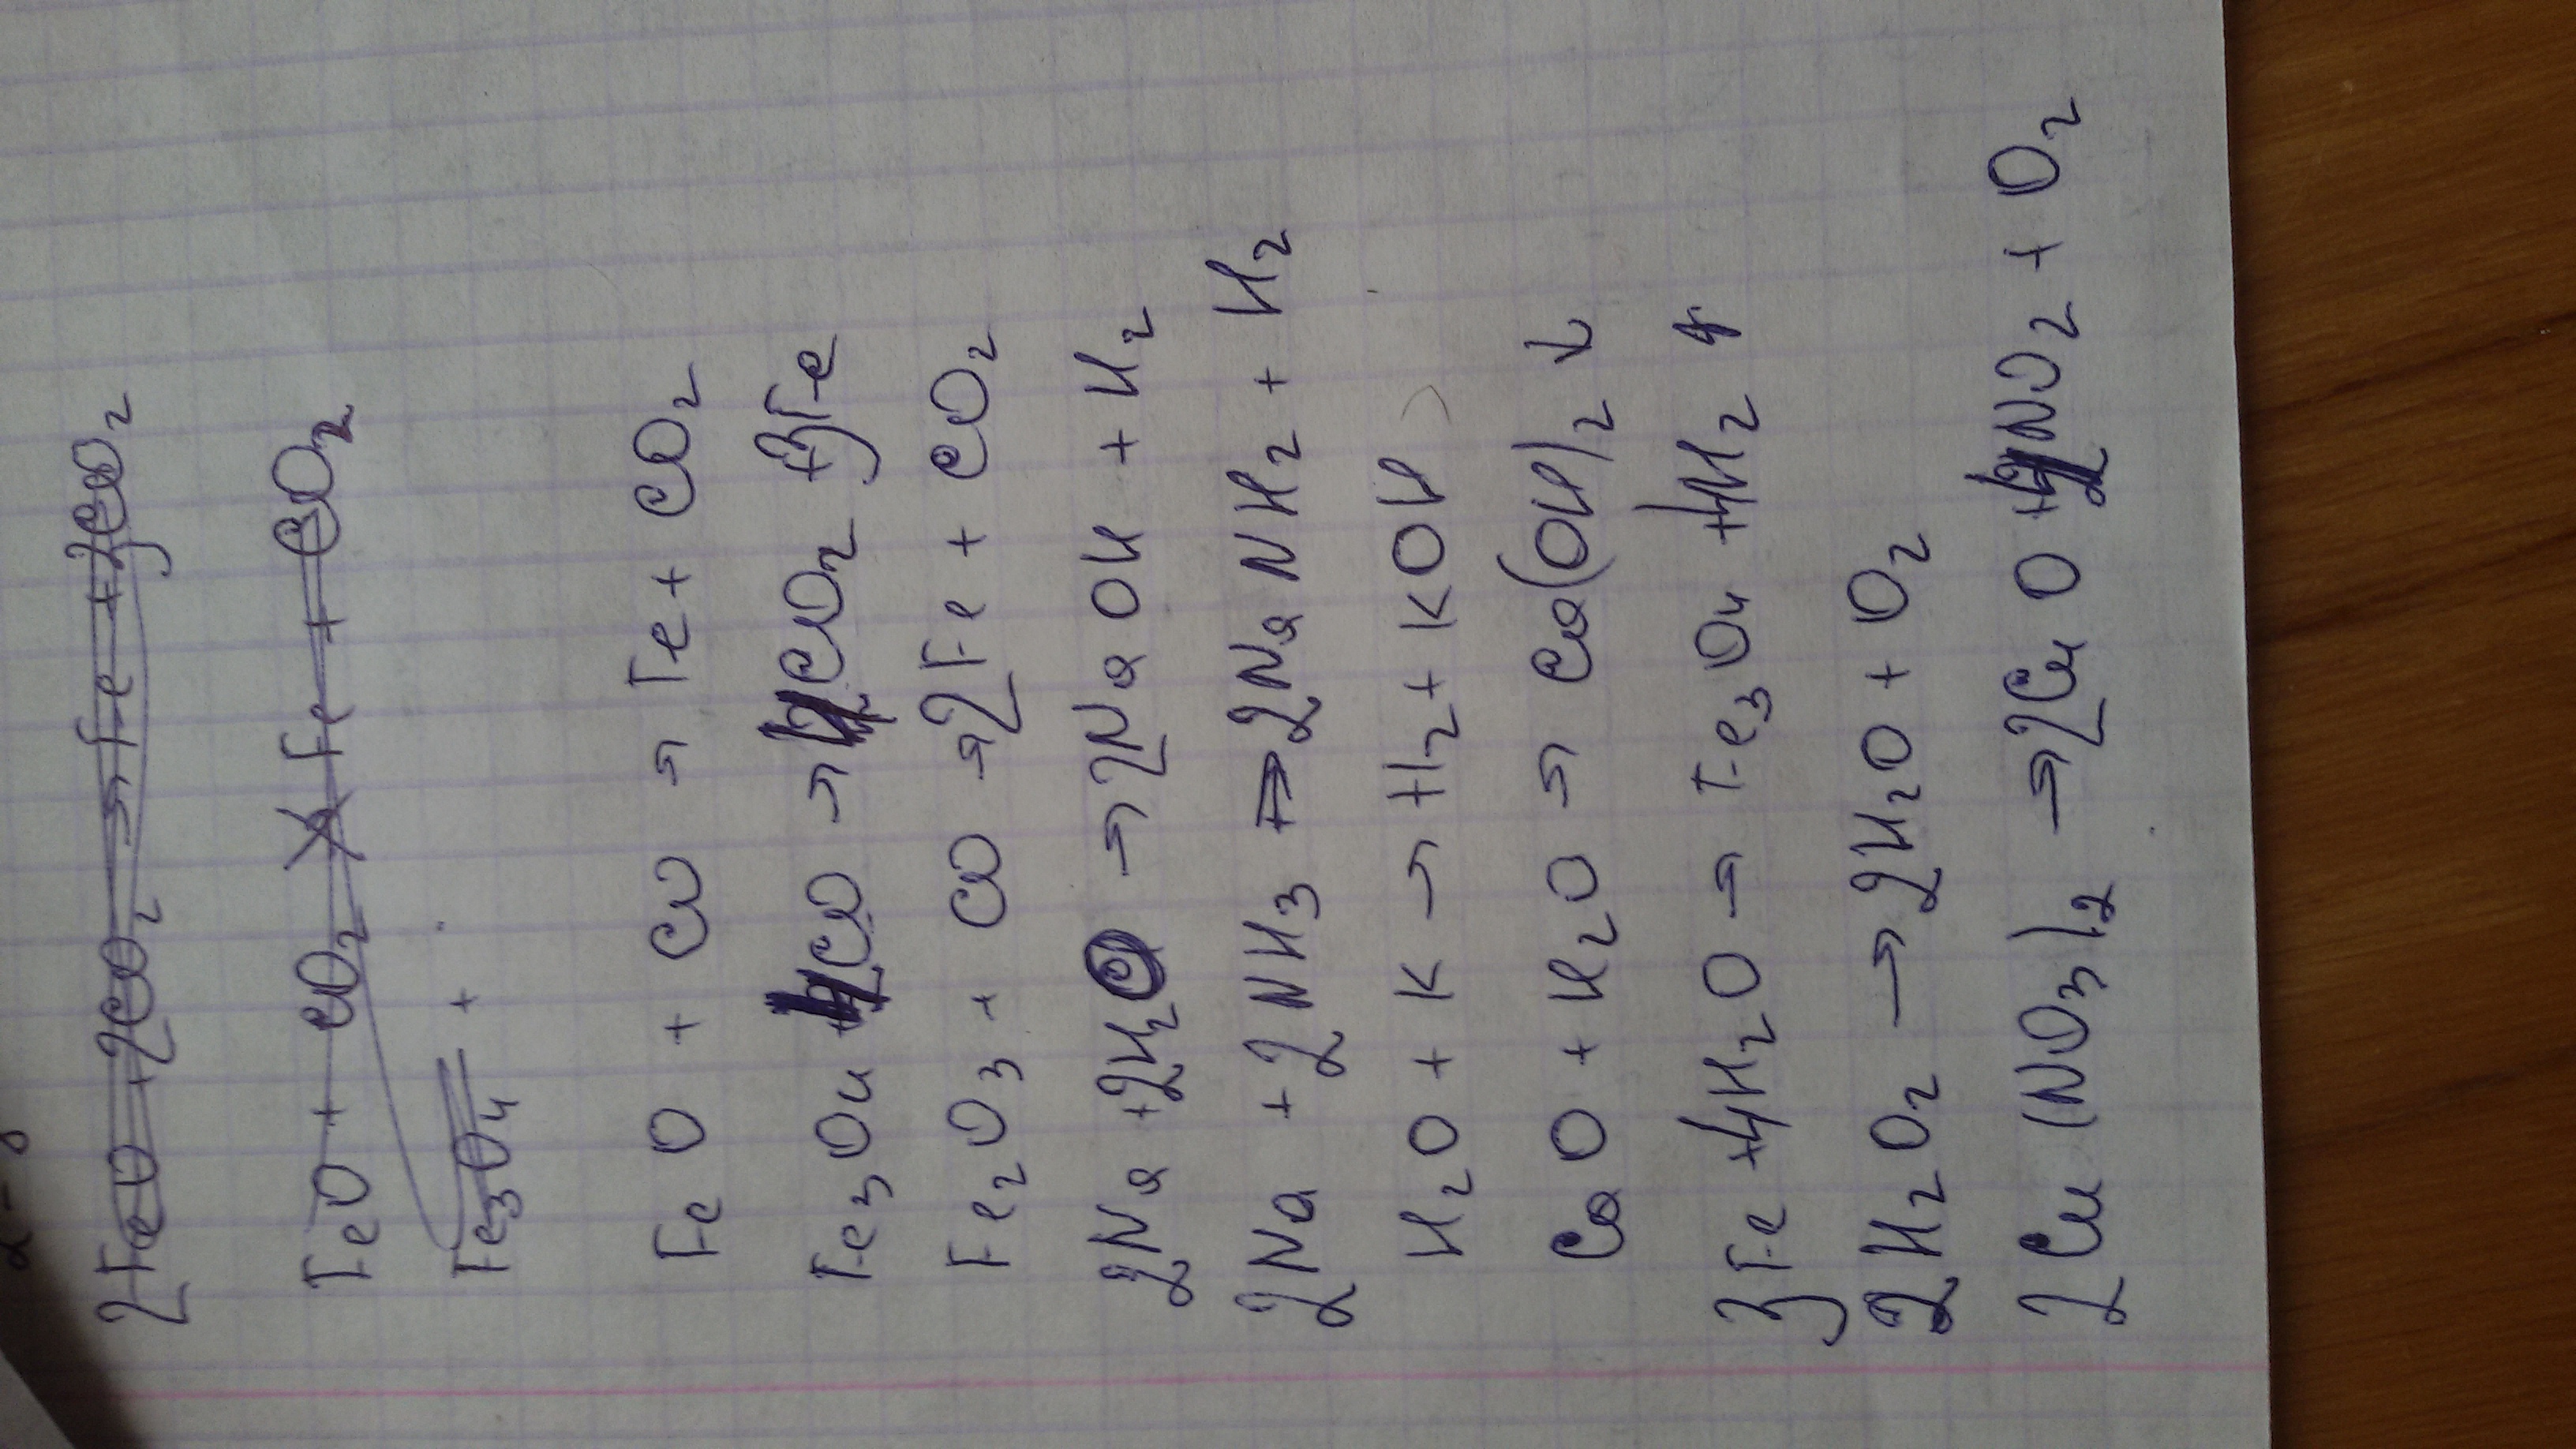 2FeO + 2CO2 → Fe + 2CO2
FeO + CO2 → Fe + CO2
Fe3O4 +
FeO + CO → Fe + CO2
Fe3O4 + 4CO → 4CO2 + 3Fe
Fe2O3 + CO → 2Fe + CO2
2Na + 2H2O → 2NaOH + H2
2Na + 2NH3 → 2NaNH2 + H2
H2O + K → H2 + KOH
CaO + H2O → Ca(OH)2 ↓
3Fe + 4H2O → Fe3O4 + 4H2 ↑
2H2O2 → 2H2O + O2
2Cu(NO3)2 → 2CuO + 4NO2 + O2